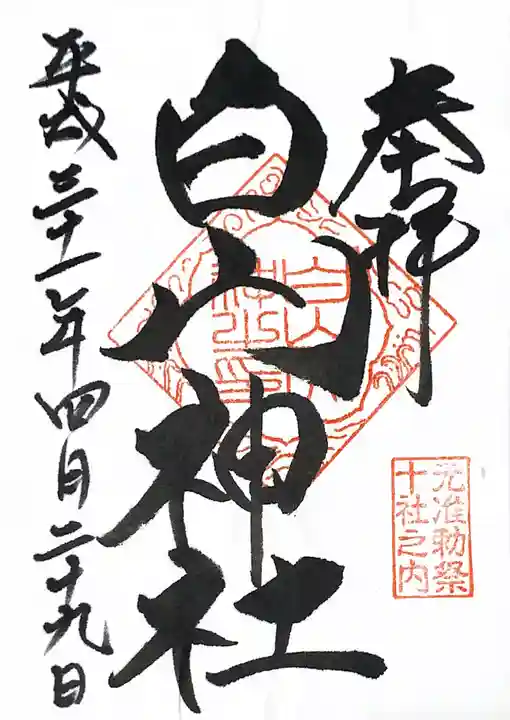 奉拝
元准勅祭
十社之内
白山神社
平成三十一年四月二十九日